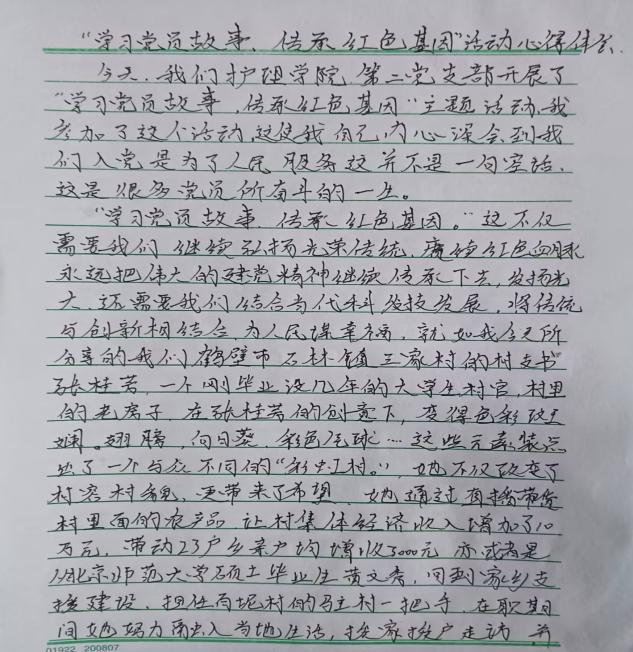 “学习党员故事、传承红色基因”活动心得体会.
今天,我们护理学院第二党支部开展了
“学习党员故事,传承红色基因”主题活动,我
参加了这个活动,这使我自己内心深会到我
们入党是为了人民服务这并不是一句空话,
这是很多党员所奋斗的一生。
“学习党员故事,传承红色基因。”这不仅
需要我们继续弘扬光荣传统,赓续红色血脉
永远把伟大的建党精神继续传承下去,发扬光
大,还需要我们结合当代科发技发展,将传统
与创新相结合,为人民谋幸福,就如我今天所
分享的我们鹤壁市石林镇三家村的村支书
张桂芳,一个刚毕业没几年的大学生村官,村里
的老房子,在张桂芳的创意下,变得色彩斑
斓。翅膀,向日葵,彩色气球…这些元素装点
出了一个与众不同的“彩虹村。”,她不仅改变了
村容村貌,更带来了希望,她通过直接带货
村里面的农产品,让村集体经济收入增加了10
万元,带动23户乡亲户均增收3000元,亦或者是
从北京师范大学硕士毕业生黄文秀,回到家乡支
援建设,担任百坭村的马主村一把手,在职期
间她努力融入当地生活,挨家挨户走访,并
01922 200807